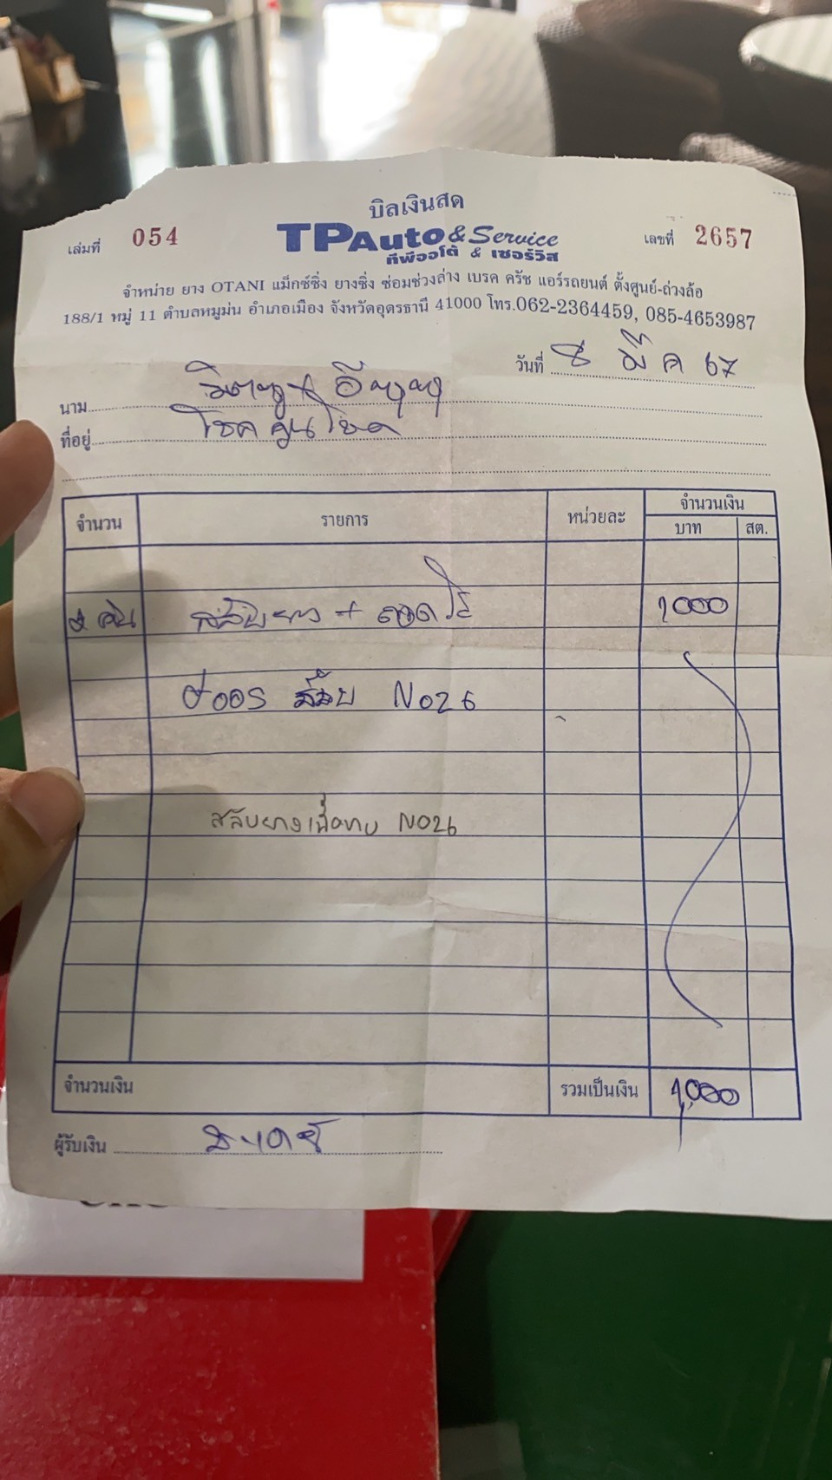 บิลเงินสด
เล่มที่ 054
TPAuto & Service
เลขที่ 2657
ทีพีออโต้ & เซอร์วิส
จำหน่าย ยาง OTANI แม็กซ์ซิ่ง ยางซิ่ง ซ่อมช่วงล่าง เบรค ครัช แอร์รถยนต์ ตั้งศูนย์-ถ่วงล้อ
188/1 หมู่ 11 ตำบลหมูม่น อำเภอเมือง จังหวัดอุดรธานี 41000 โทร.062-2364459, 085-4653987
วันที่ 8 มี ค 67
นาม
ที่อยู่ โชค คูน โชค
จำนวน รายการ หน่วยละ จำนวนเงิน
บาท สต.
สลับยาง + 1000
NO26
สลับยาง NO26
จำนวนเงิน รวมเป็นเงิน 1,000
ผู้รับเงิน